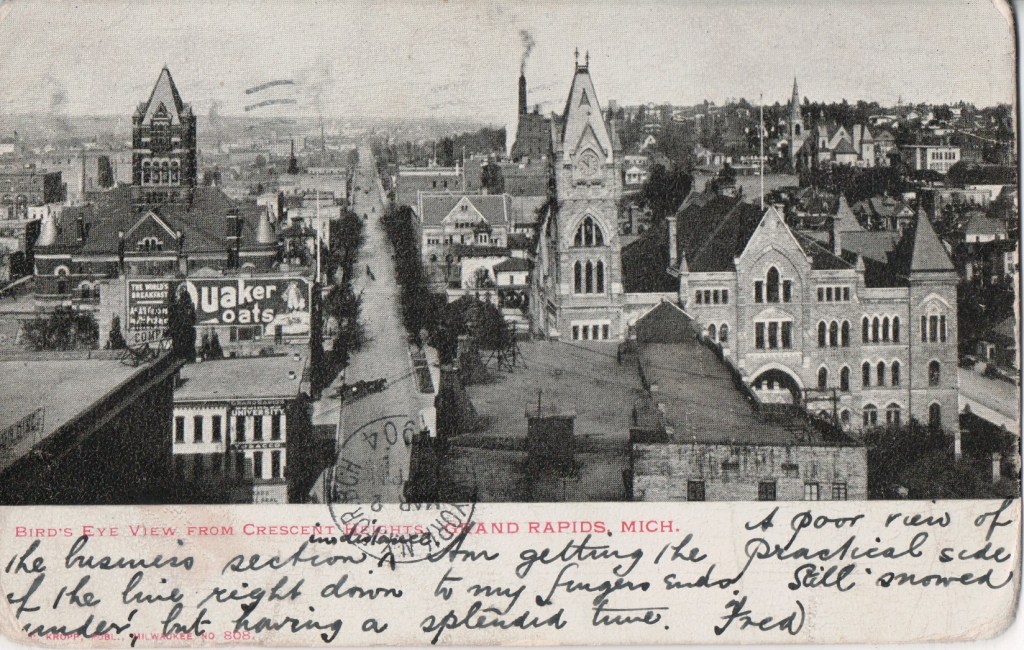 THE WORLD'S
BREAKFAST
Quaker
oats
UNIVERSITY
TOBACCO
904
BIRD'S EYE VIEW FROM CRESCENT HEIGHTS, GRAND RAPIDS, MICH.
A poor view of
in distance
the business section. Am getting the practical side
of the line right down to my fingers ends. Still "snowed
under", but having a splendid time. Fred
KROPP, PUBL., MILWAUKEE NO 808.